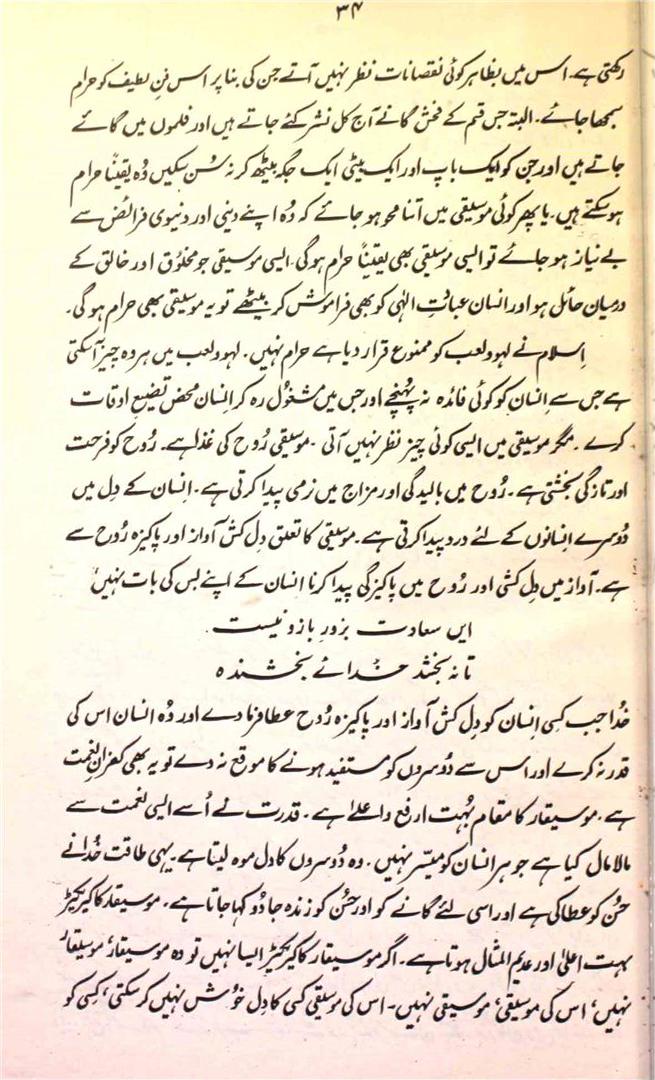 ۳۴
رکھتی ہے۔ اس میں بظاہر کوئی نقصانات نظر نہیں آتے جن کی بنا پر اس فنِ لطیف کو حرام
سمجھا جائے۔ البتہ جس قسم کے فحش گانے آج کل نشر کئے جاتے ہیں اور فلموں میں گائے
جاتے ہیں اور جن کو ایک باپ اور ایک بیٹی ایک جگہ بیٹھ کر نہ سُن سکیں وُہ یقیناً حرام
ہو سکتے ہیں۔ یا پھر کوئی موسیقی میں اتنا محو ہو جائے کہ وُہ اپنے دینی اور دنیوی فرائض سے
بے نیاز ہو جائے تو ایسی موسیقی بھی یقیناً حرام ہوگی۔ ایسی موسیقی جو مخلوُق اور خالق کے
درمیان حائل ہو اور انسان عبادتِ الٰہی کو بھی فراموش کر بیٹھے تو یہ موسیقی بھی حرام ہوگی۔
اِسلام نے لہو و لعب کو ممنوع قرار دیا ہے حرام نہیں۔ لہو و لعب میں ہر وہ چیز آ سکتی
ہے جس سے اِنسان کو کوئی فائدہ نہ پہُنچے اور جس میں مشغوُل رہ کر اِنسان محض تضیعِ اوقات
کرے۔ مگر موسیقی میں ایسی کوئی چیز نظر نہیں آتی۔ موسیقی رُوح کی غذا ہے۔ رُوح کو فرحت
اور تازگی بخشتی ہے۔ رُوح میں بالیدگی اور مزاج میں نرمی پیدا کرتی ہے۔ اِنسان کے دِل میں
دُوسرے اِنسانوں کے لئے درد پیدا کرتی ہے۔ موسیقی کا تعلق دِل کش آواز اور پاکیزہ رُوح سے
ہے۔ آواز میں دِل کشی اور رُوح میں پاکیزگی پیدا کرنا اِنسان کے اپنے بس کی بات نہیں
ایں سعادت بزورِ بازو نیست
تا نہ بخشد خُدائے بخشندہ
خُدا جب کسی اِنسان کو دِل کش آواز اور پاکیزہ رُوح عطا فرما دے اور وُہ انسان اس کی
قدر نہ کرے اور اس سے دُوسروں کو مستفید ہونے کا موقع نہ دے تو یہ بھی کفرانِ نعمت
ہے۔ موسیقار کا مقام بہُت ارفع و اعلےٰ ہے۔ قدرت نے اُسے ایسی نعمت سے
مالا مال کیا ہے جو ہر انسان کو میسّر نہیں۔ وہ دُوسروں کا دل موہ لیتا ہے۔ یہی طاقت خُدا نے
حُسن کو عطا کی ہے اور اسی لئے گانے کو اور حُسن کو زندہ جادُو کہا جاتا ہے۔ موسیقار کا کیریکٹر
بہت اعلیٰ اور عدیم المثال ہوتا ہے۔ اگر موسیقار کا کیریکٹر ایسا نہیں تو وہ موسیقار، موسیقار
نہیں، اس کی موسیقی، موسیقی نہیں۔ اس کی موسیقی کسی کا دِل خُوش نہیں کر سکتی، کِسی کو